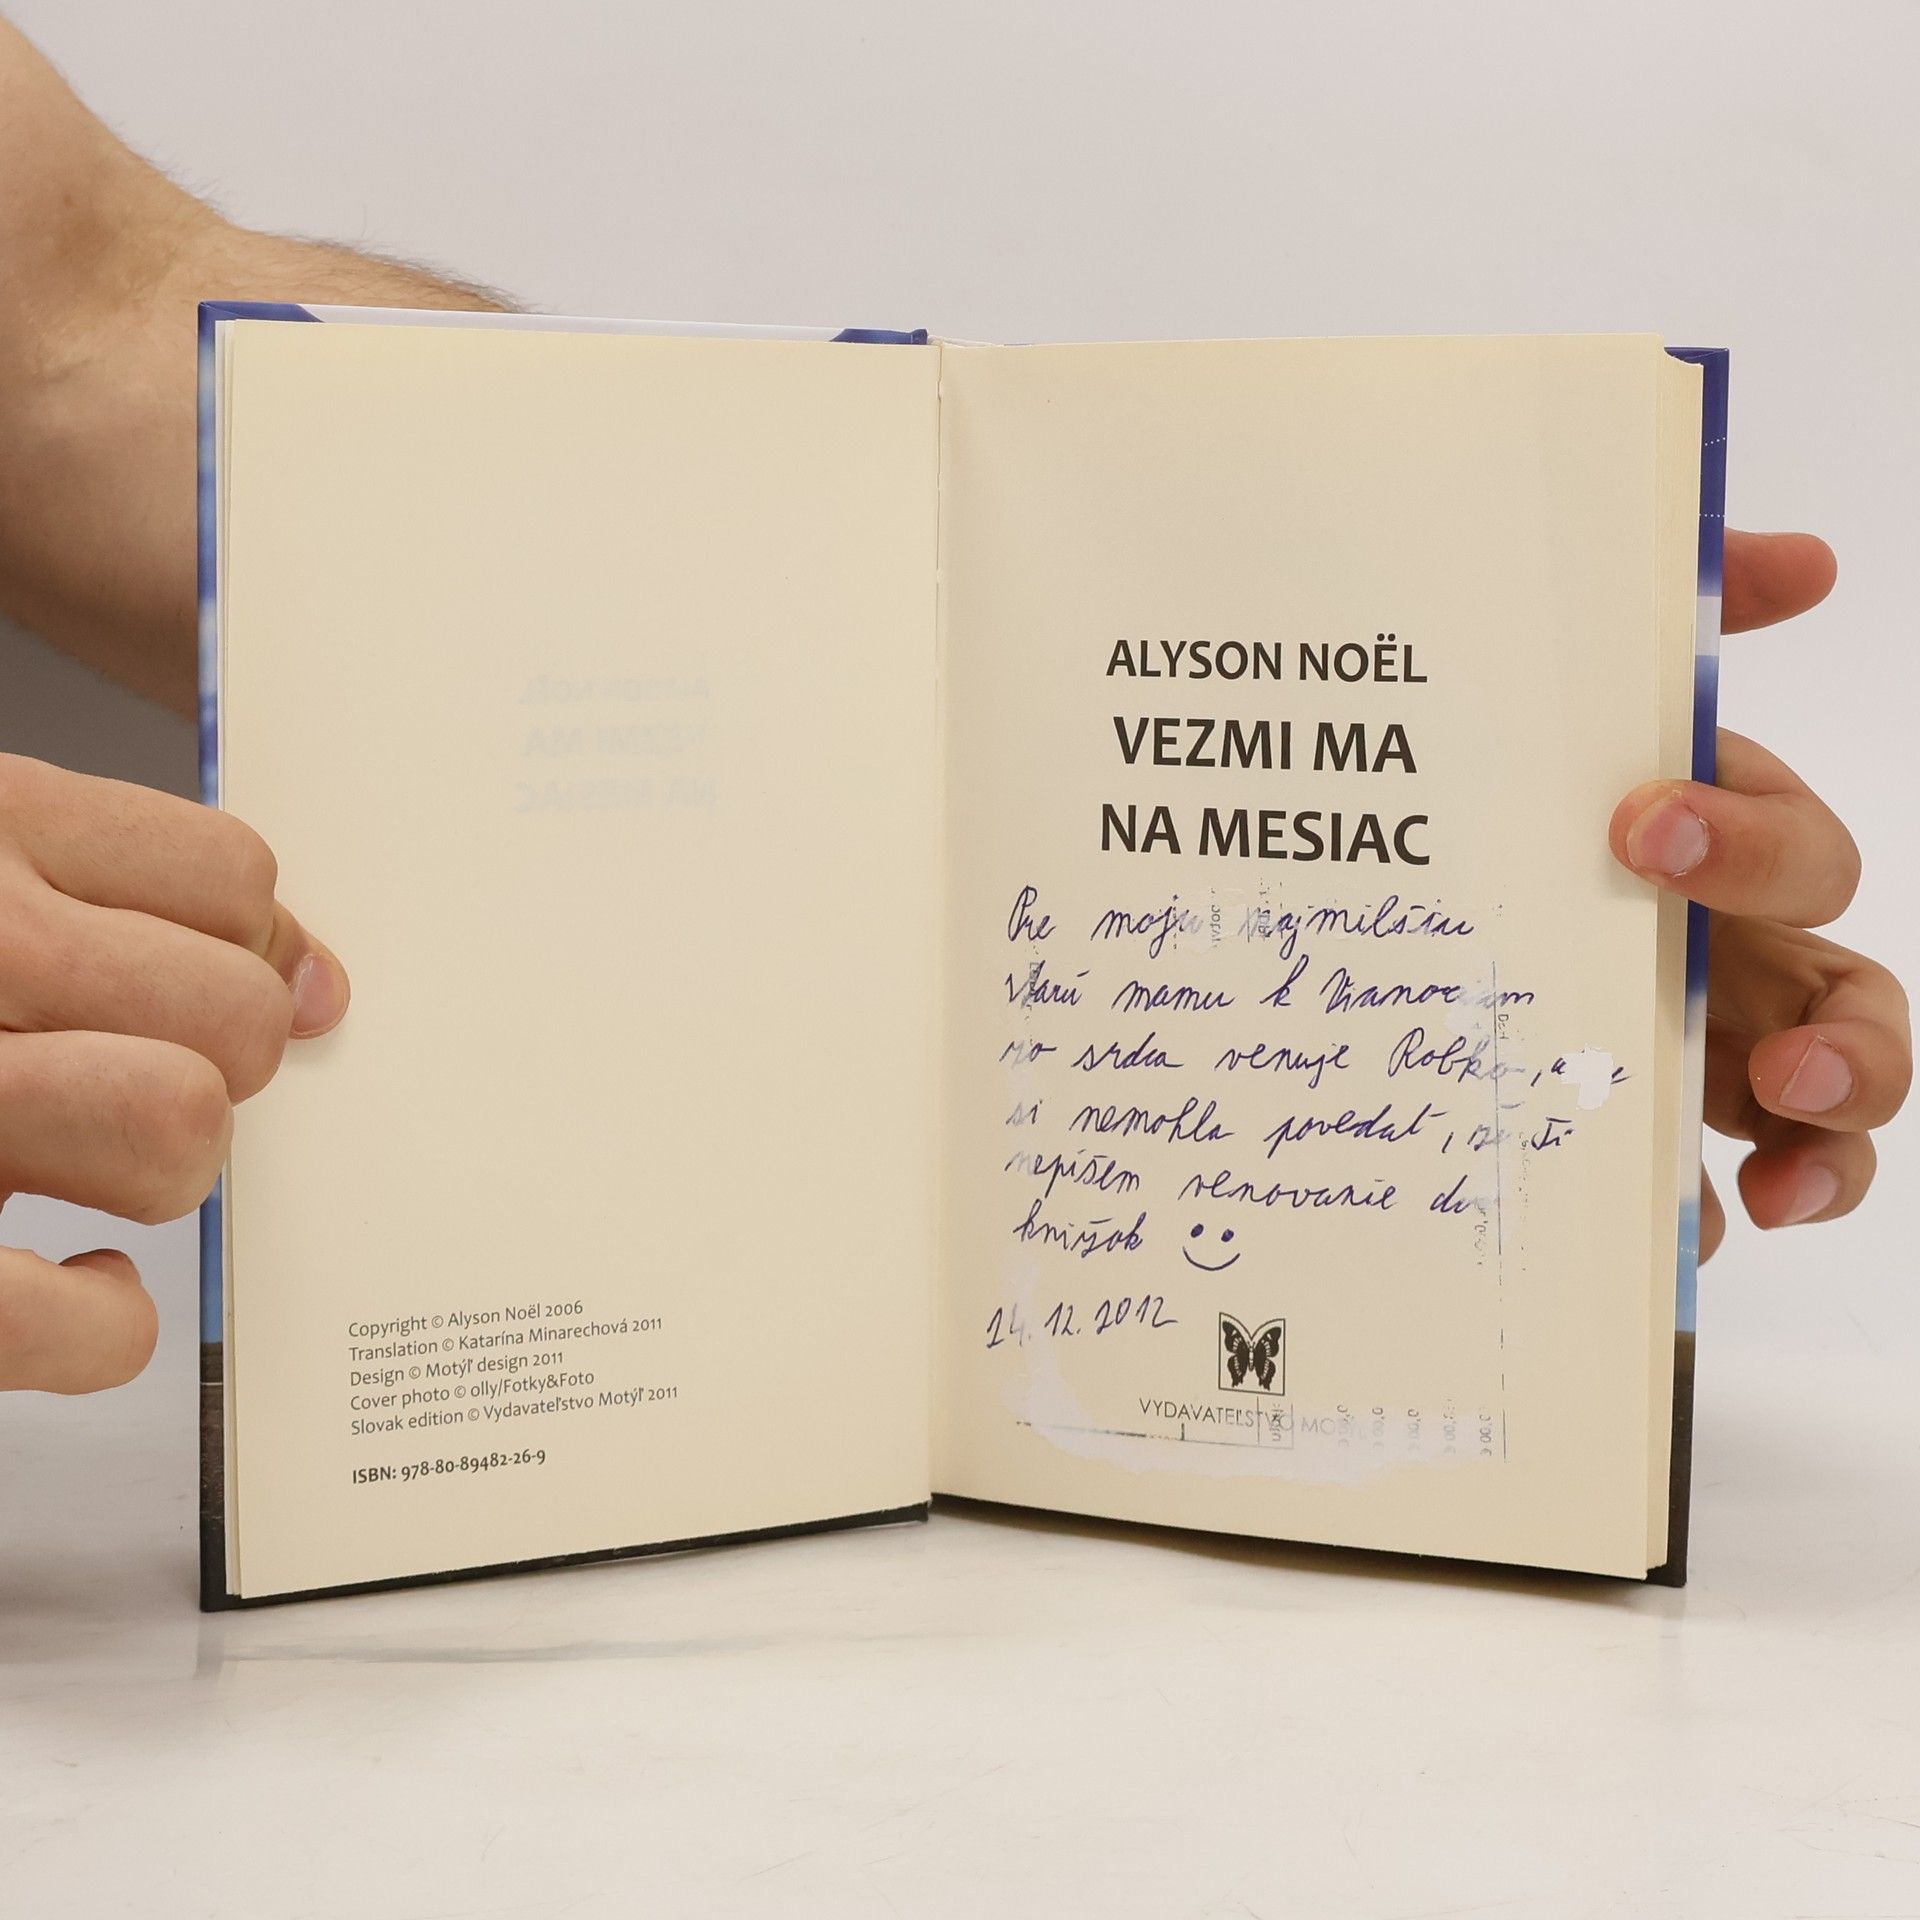 Copyright © Alyson Noël 2006
Translation © Katarína Minarechová 2011
Design © Motýľ design 2011
Cover photo © olly/Fotky&Foto
Slovak edition © Vydavateľstvo Motýľ 2011
ISBN: 978-80-89482-26-9
ALYSON NOËL
VEZMI MA
NA MESIAC
Pre moju najmilšiu
starú mamu k Vianociam
zo srdca venuje Robko, a
si nemohla povedat, že Ti
nepíšem venovanie do
knižok
24. 12. 2012
VYDAVATEĽSTVO